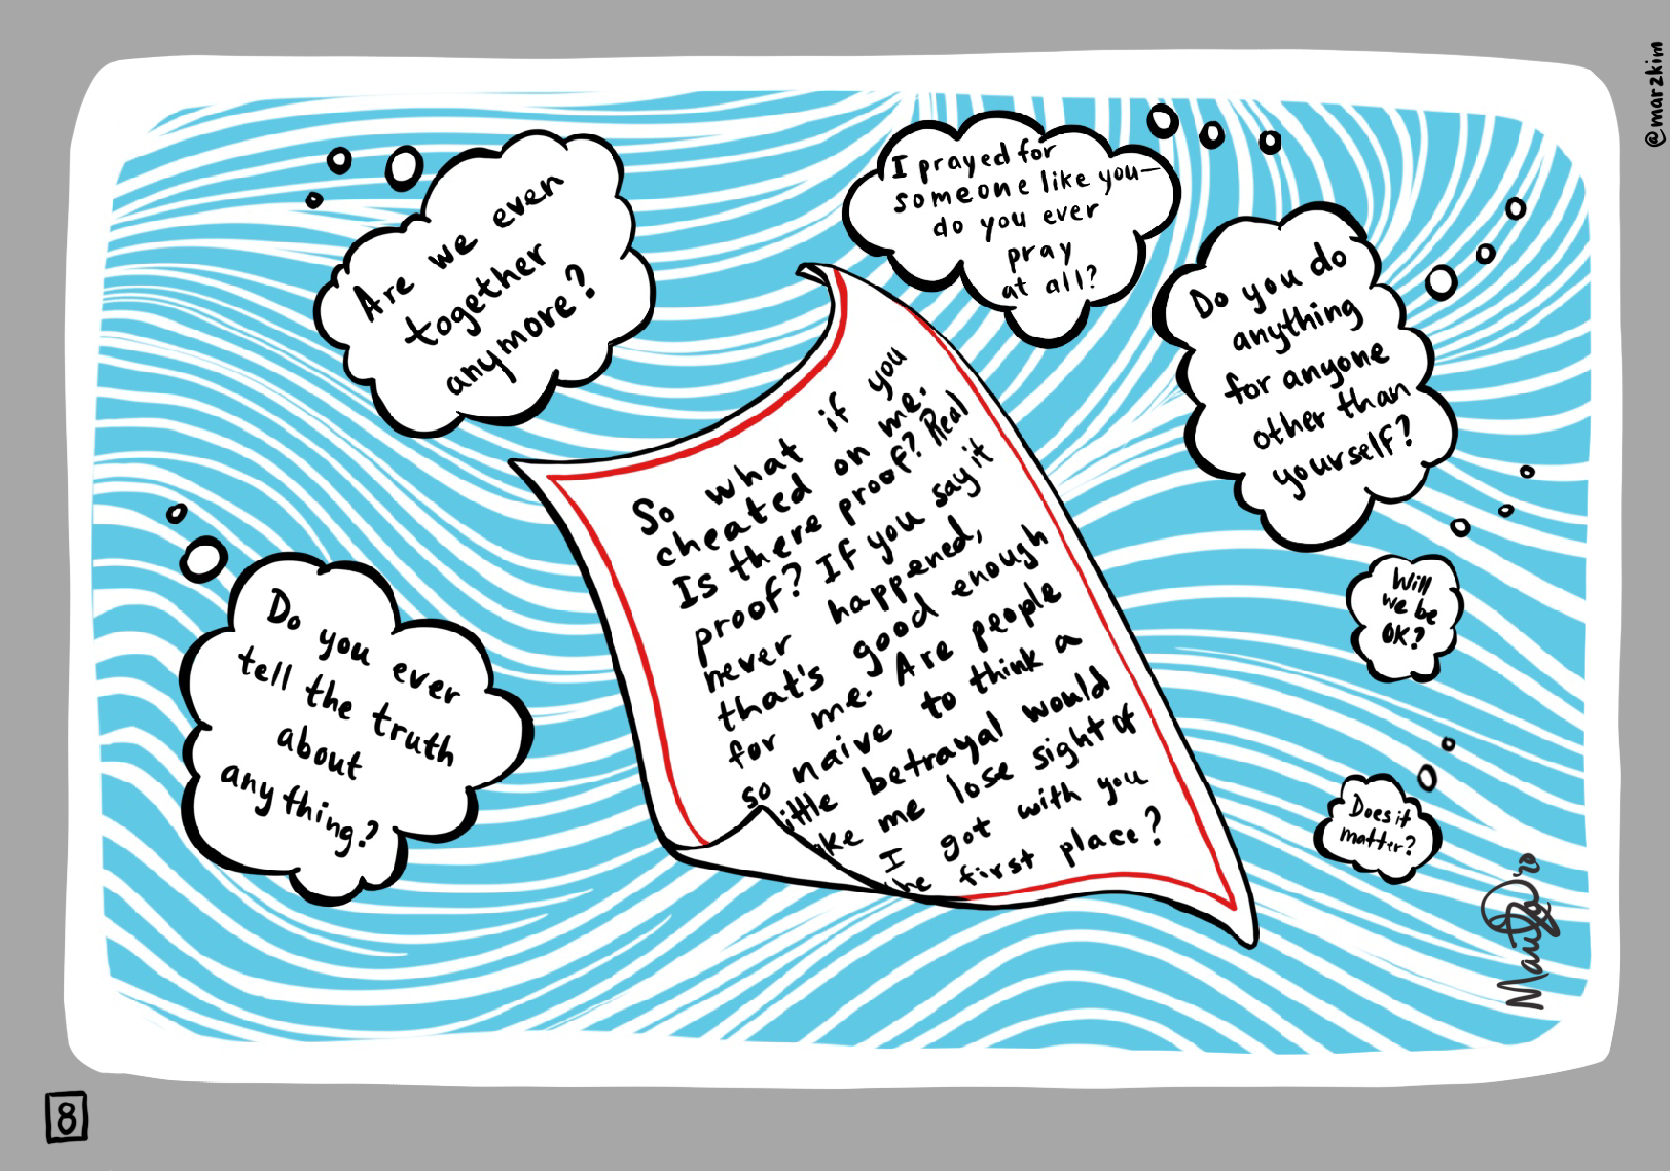 @marzkim
Are we even
together
anymore?
I prayed for
someone like you—
do you ever
pray
at all?
Do you do
anything
for anyone
other than
yourself?
So what if you
cheated on me.
Is there proof? Real
proof? If you say it
never happened,
that's good enough
for me. Are people
so naive to think a
ittle betrayal would
ke me lose sight of
I got with you
he first place?
Do you ever
tell the truth
about
anything?
Will
we be
OK?
Does it
matter?
8